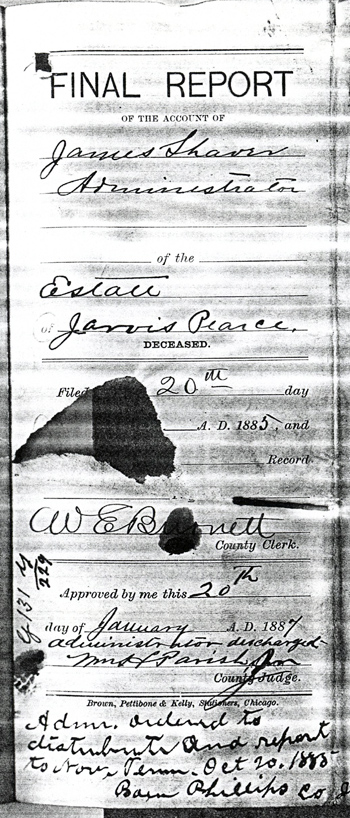 FINAL REPORT
OF THE ACCOUNT OF
James Shaver
Administrator
of the
Estate
of Jarvis Pearce,
DECEASED.
Filed 20th day
A. D. 1885, and
Record
W E
County Clerk.
Approved by me this 20th
day of January A. D. 1887
administrator discharged
County Judge.
Brown, Pettibone & Kelly, Stationers, Chicago.
Adm. ordered to
distribute and report
to Nov. Term. Oct 20, 1885
Phillips Co J